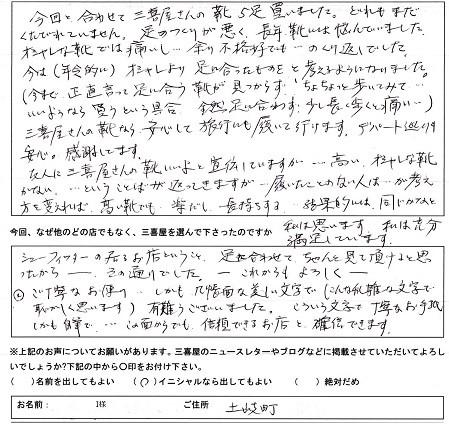 今回と合わせて三喜屋さんの靴5足買いました。どれもまだ
くたびれていません。足のつくりが悪く、長年靴には悩んでいました。
オシャレな靴では痛いし…余り不格好でも…のくり返しでした。
今は(年令的に)オシャレより足に合ったものをと考えるようになりました。
(今まで正直言って足に合う靴が見つからず、ちょちょっと歩いてみて…
いいようなら買うという具合 全然足に合わず、少し長く歩くと痛い…)
三喜屋さんの靴なら安心して旅行にも履いて行けます。デパート巡りも
安心。感謝してます。
友人に三喜屋さんの靴いいよと宣伝していますが…高い、オシャレな靴
がない、…ということばが返ってきますが…履いたことのない人は…が考え
方を変えれば、高い靴でも楽だし、長持ちする、結果的には、同じかなと
私は思います 私は充分
満足しています。
今回、なぜ他のどの店でもなく、三喜屋を選んで下さったのですか
シューフィッターの居るお店ということ、足に合わせて、ちゃんと見て頂けると思
ったから ― その通りでした。― これからもよろしく ―
ご丁寧なお便り…しかも几帳面な美しい文字で(こんな乱雑な文字で
恥かしく思います)有難うございました。こういう文字で丁寧なお手紙
しかも自筆で…この面からでも、信頼できるお店と確信できます。
※上記のお声についてお願いがあります。三喜屋のニュースレターやブログなどに掲載させていただいてよろし
いでしょうか?下記の中から〇印をお付け下さい。
( )名前を出してもよい (〇)イニシャルなら出してもよい ( )絶対だめ
お名前: I様 ご住所 土岐町